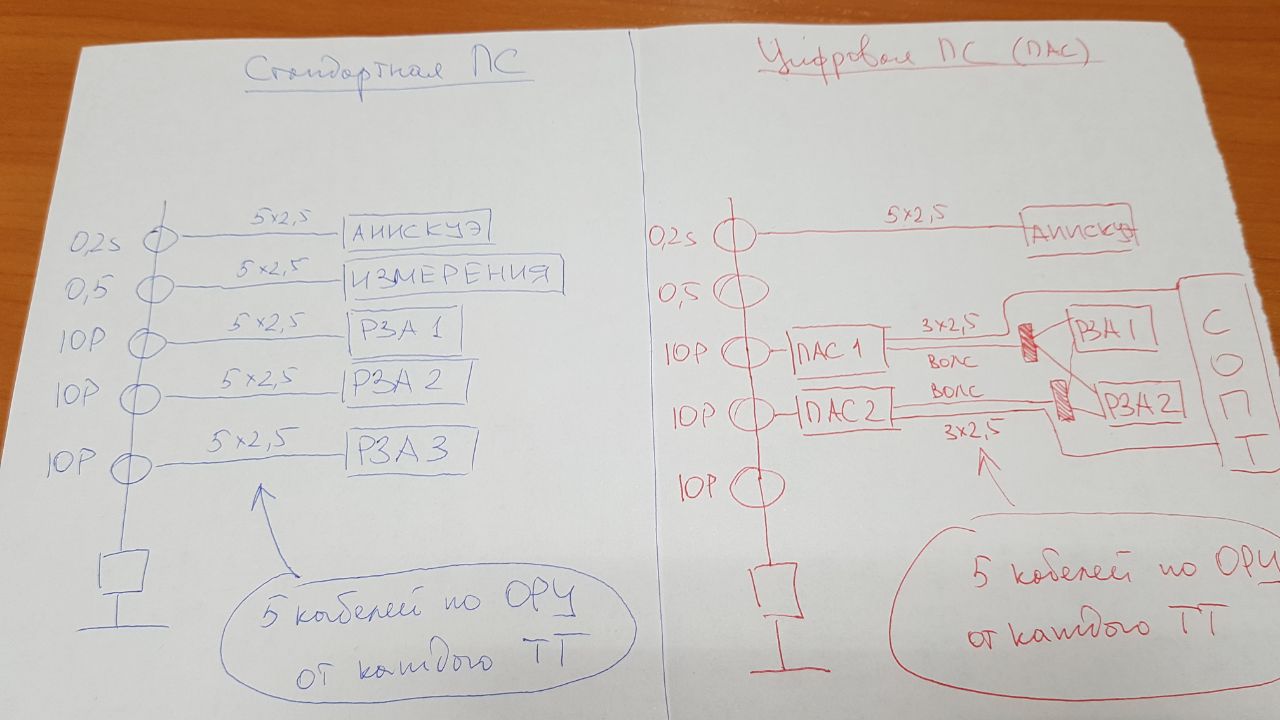 Стандартная ПС
0,2s
5×2,5
АИИСКУЭ
0,5
5×2,5
ИЗМЕРЕНИЯ
10Р
5×2,5
РЗА 1
10Р
5×2,5
РЗА 2
10Р
5×2,5
РЗА 3
5 кабелей по ОРУ
от каждого ТТ
Цифровая ПС (ПАС)
0,2s
5×2,5
АИИСКУЭ
0,5
10Р
ПАС 1
3×2,5
ВОЛС
РЗА 1
10Р
ПАС 2
ВОЛС
3×2,5
РЗА 2
СОПТ
10Р
5 кабелей по ОРУ
от каждого ТТ